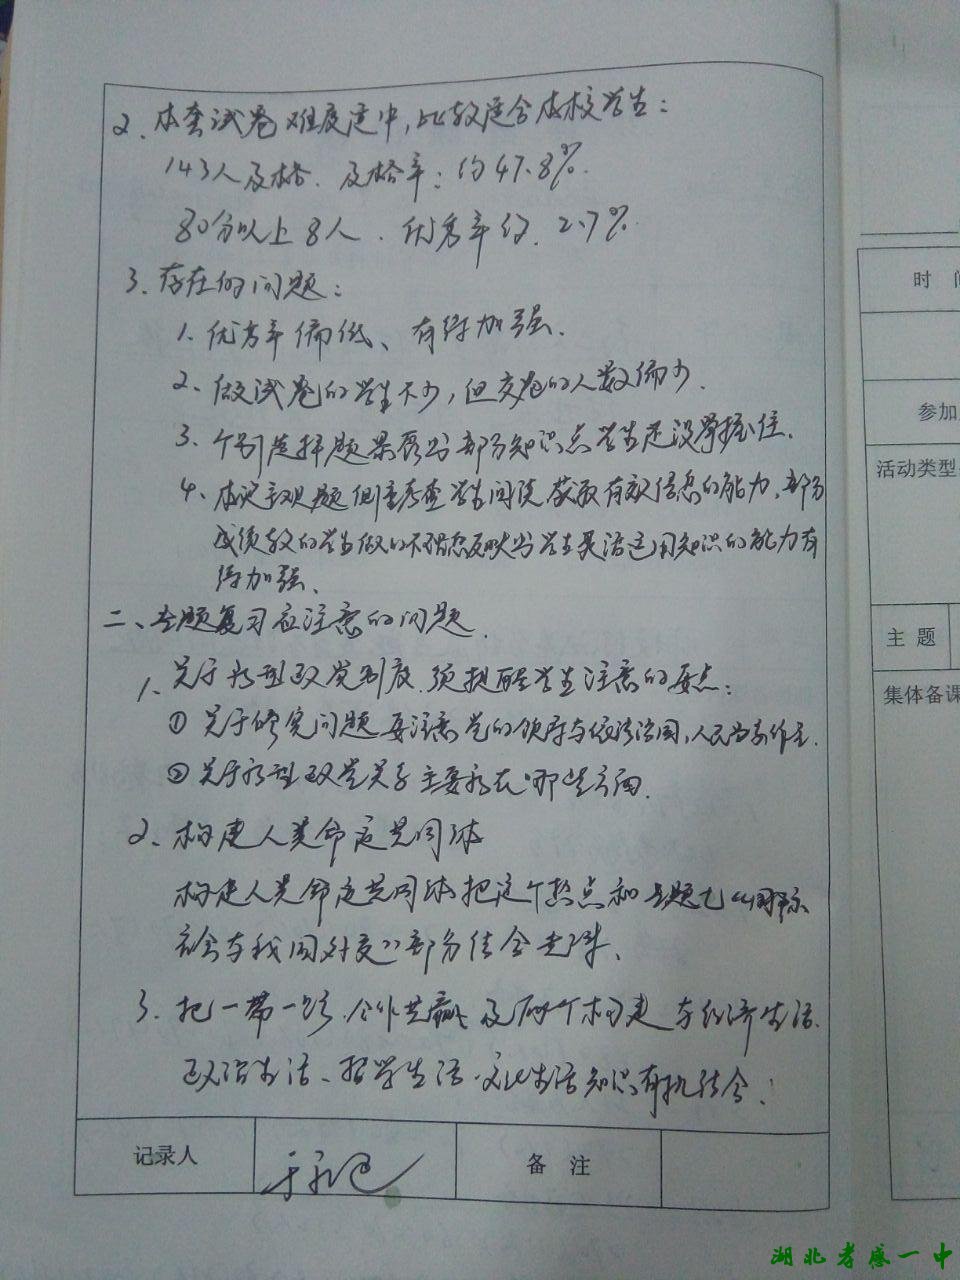 2、本套试卷难度适中，比较适合本校学生：
143人及格．及格率：约47.8%．
80分以上8人．优秀率约．2.7%．
3、存在的问题：
1、优秀率偏低、有待加强．
2、做试卷的学生不少，但交卷的人数偏少．
3、个别选择题暴露出部分知识点学生还没掌握住．
4、本次主观题侧重考查学生阅读获取有效信息的能力，部分
成绩较的学生做的不理想反映出学生灵活运用知识的能力有
待加强、
二、专题复习应注意的问题．
1、关于新型政党制度．须提醒学生注意的要点：
① 关于修宪问题要注意党的领导与依法治国，人民当家作主．
② 关于新型政党关系主要新在哪些方面．
2、构建人类命运共同体
构建人类命运共同体把这个热点和专题七“国际
社会与我国外交”部分结合起来、
3、把一带一路．合作共赢及两个构建与经济生活．
政治生活、哲学生活．文化生活知识有机结合；
记录人
备 注
时 间
参加
活动类型
主 题
集体备课
湖北孝感一中